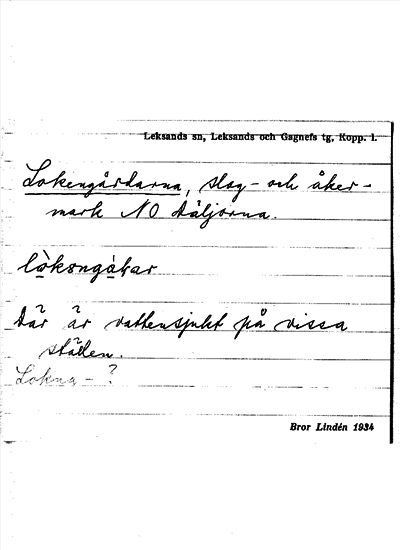 Leksands sn, Leksands och Gagnefs tg, Kopp. l.
Lokengårdarna, slog- och åker-
mark NO Däljorna.
lòksngàkar
Där är vattensjukt på vissa
ställen.
Lokna - ?
Bror Lindén 1934